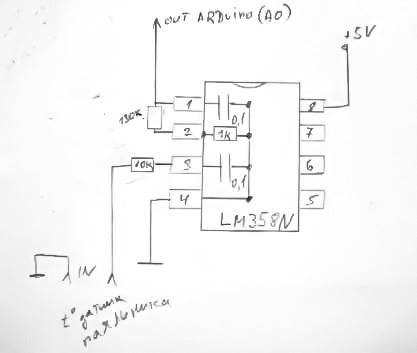 OUT ARDuino (A0)
+5V
130K
1
0,1
8
2
1K
7
10K
3
0,1
6
4
5
LM358N
IN
t° датчик
паяльника